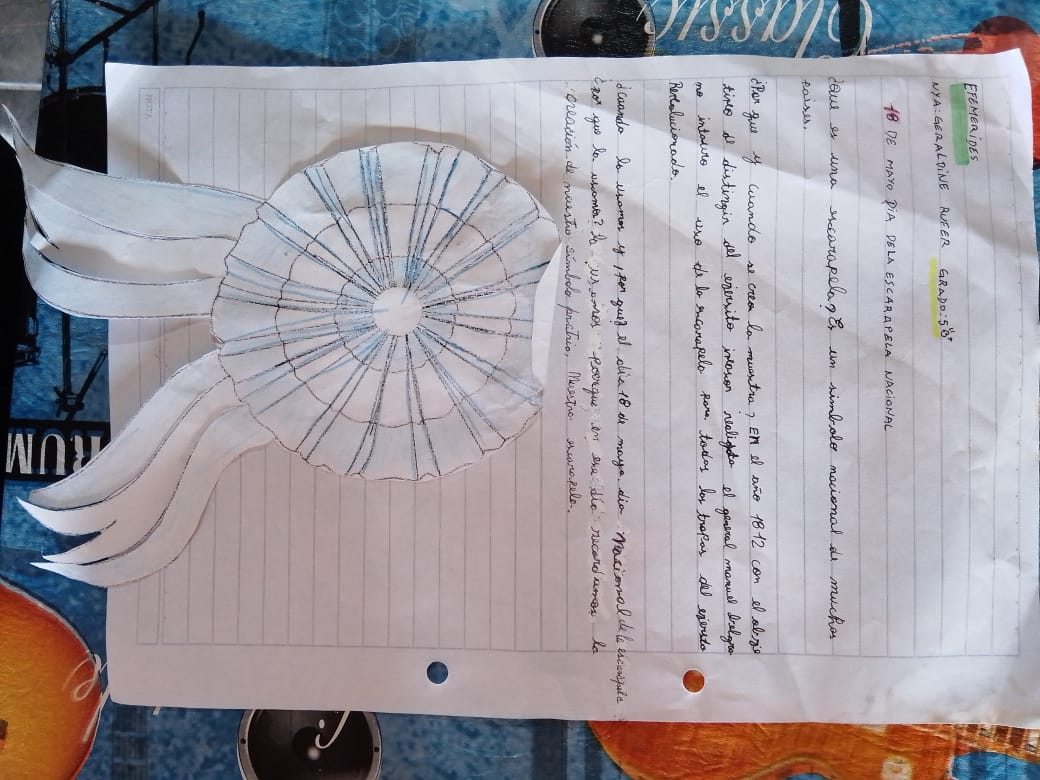 EFEMERIDES
N/A: GERALDINE RUFER GRADO: 5º
18 DE MAYO DIA DE LA ESCARAPELA NACIONAL
¿Que es una escarapela? Es un simbolo nacional de muchos
paises.
¿Por que y cuando se crea la nuestra? EN el año 1812 con el obje
tivo de distingir del ejercito invasor realista el general manuel belgra
no instauro el uso de la escarapela para todas las tropas del ejercito
Revolucionado.
¿cuando la usamos y por que? el dia 18 de mayo dia Nacional de la escarapela
¿por que la usamos? La usamos porque en ese dia recordamos la
creación de nuestro simbolo patrio, Nuestra escarapela.
NOTA
Classic
RUM